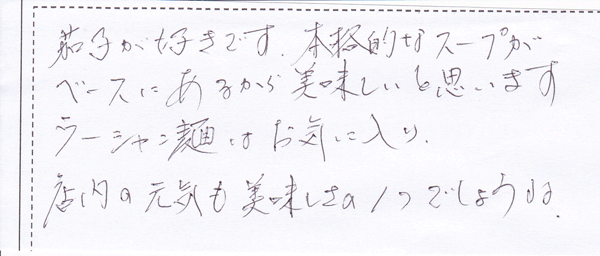 茄子が好きです。本格的なスープが
ベースにあるから美味しいと思います
ラーシャン麺はお気に入り。
店内の元気も美味しさの1つでしょうね。